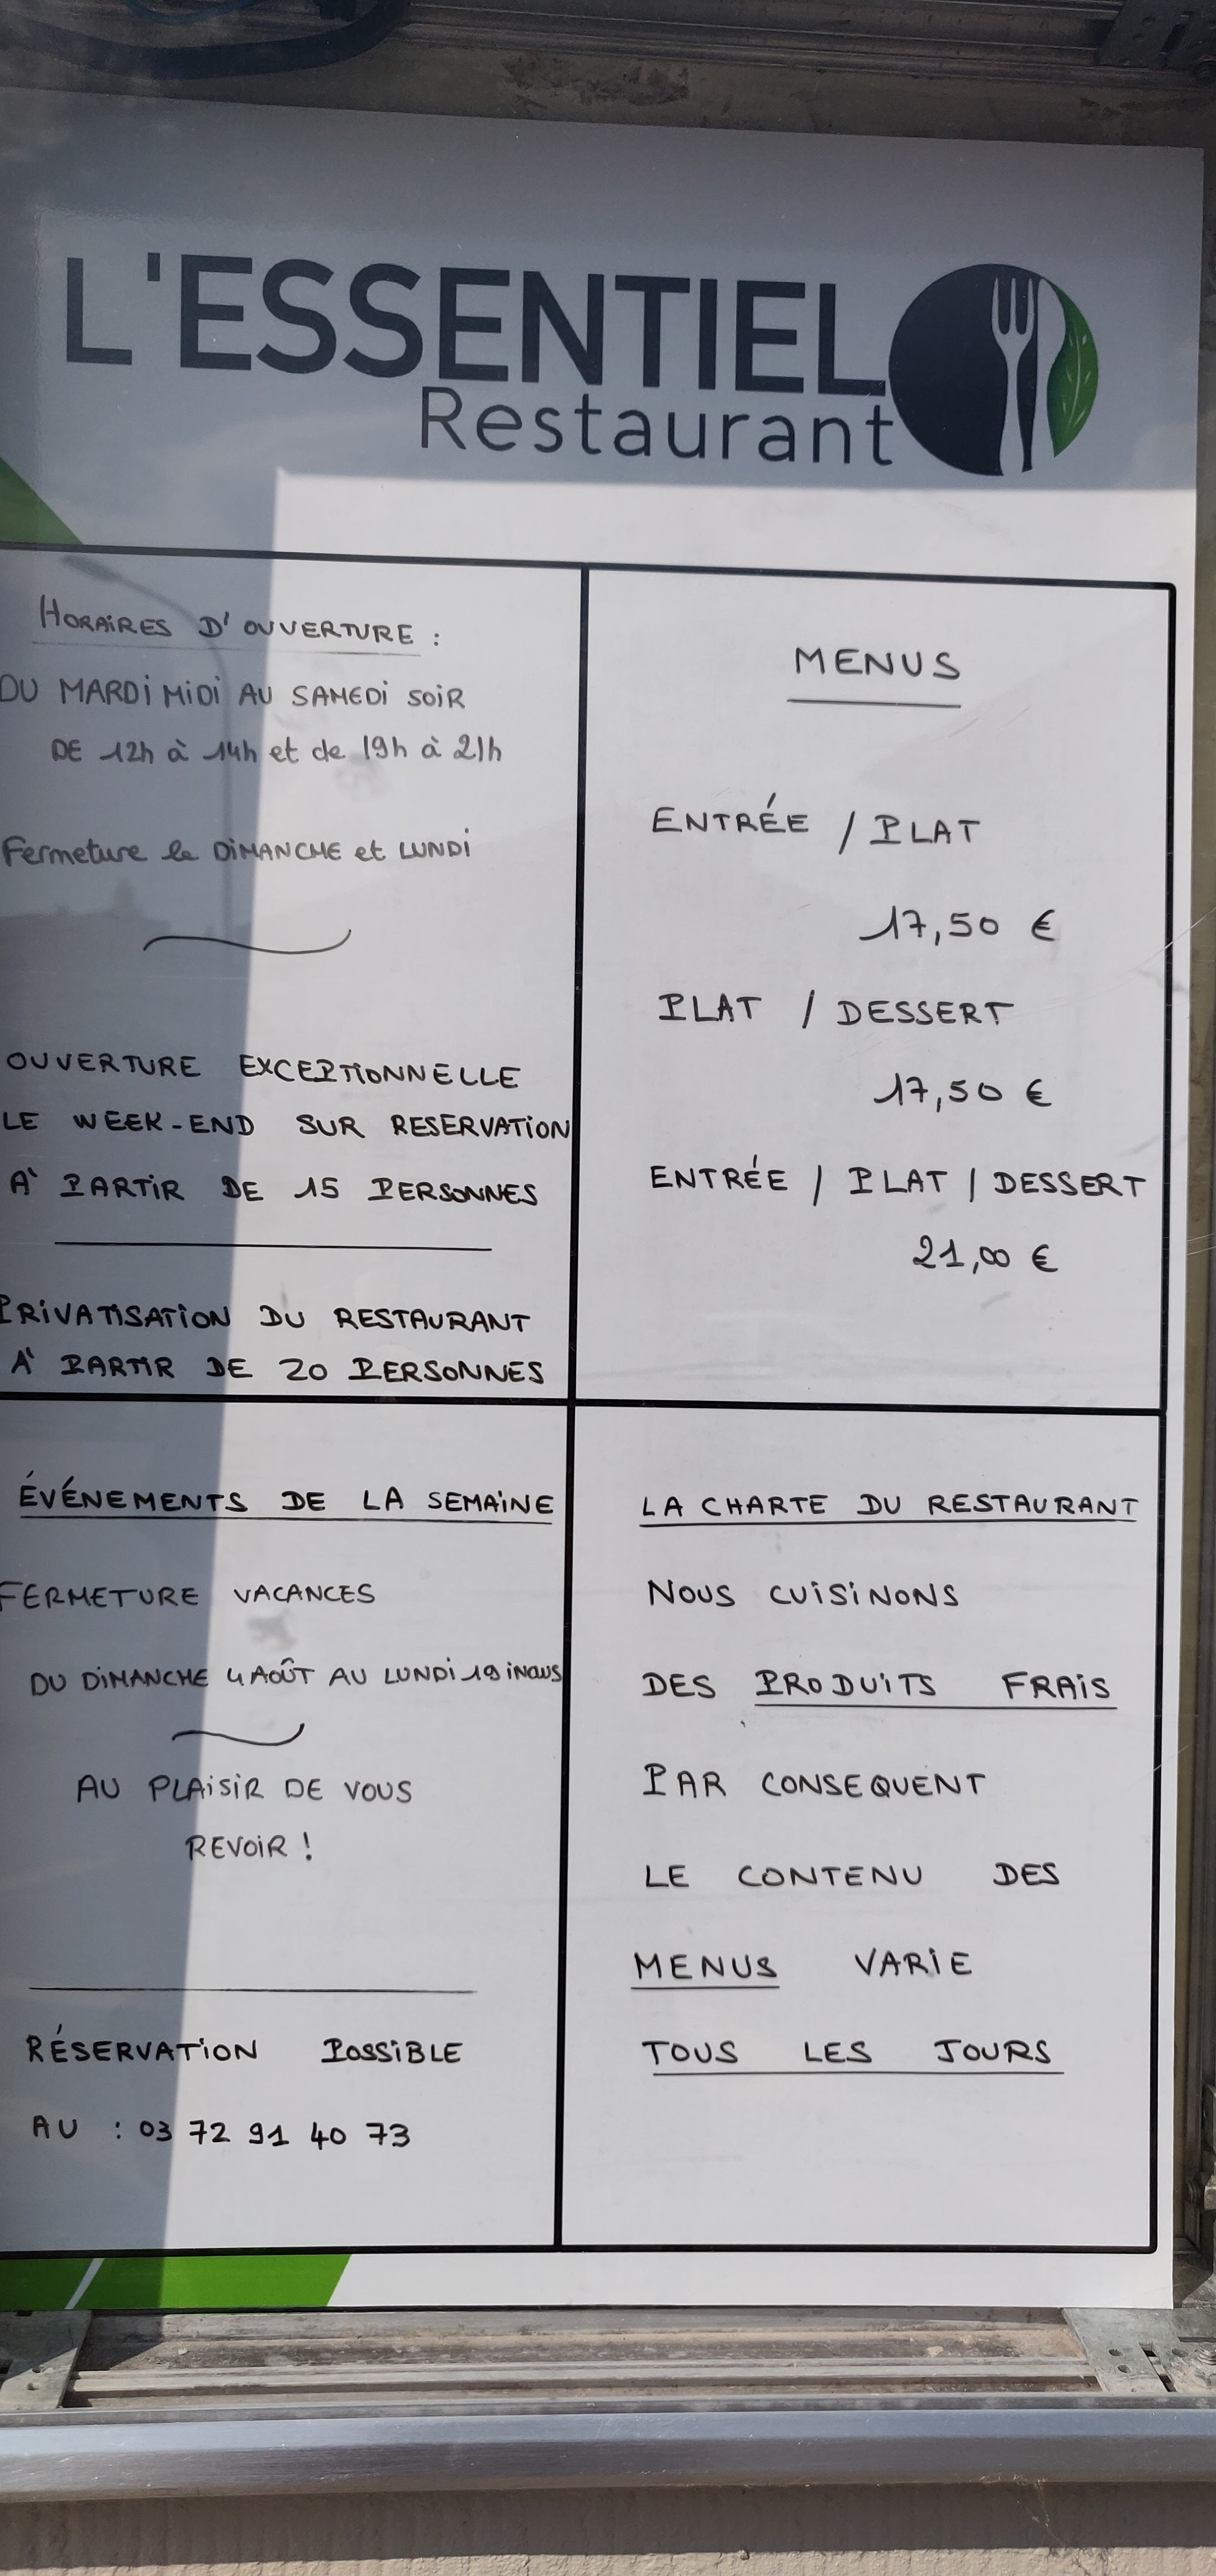 L'ESSENTIEL
Restaurant
HORAIRES D'OUVERTURE :
DU MARDI MIDI AU SAMEDI SOIR
DE 12h à 14h et de 19h à 21h
Fermeture le DIMANCHE et LUNDI
OUVERTURE EXCEPTIONNELLE
LE WEEK-END SUR RESERVATION
A PARTIR DE 15 PERSONNES
PRIVATISATION DU RESTAURANT
A PARTIR DE 20 PERSONNES
MENUS
ENTRÉE / PLAT
17,50 €
PLAT / DESSERT
17,50 €
ENTRÉE / PLAT / DESSERT
21,00 €
ÉVÉNEMENTS DE LA SEMAINE
FERMETURE VACANCES
DU DIMANCHE 4 AOÛT AU LUNDI 19 iNCLUS
AU PLAISIR DE VOUS
REVOIR !
RÉSERVATION POSSIBLE
AU : 03 72 91 40 73
LA CHARTE DU RESTAURANT
NOUS CUISINONS
DES PRODUITS FRAIS
PAR CONSEQUENT
LE CONTENU DES
MENUS VARIE
TOUS LES JOURS